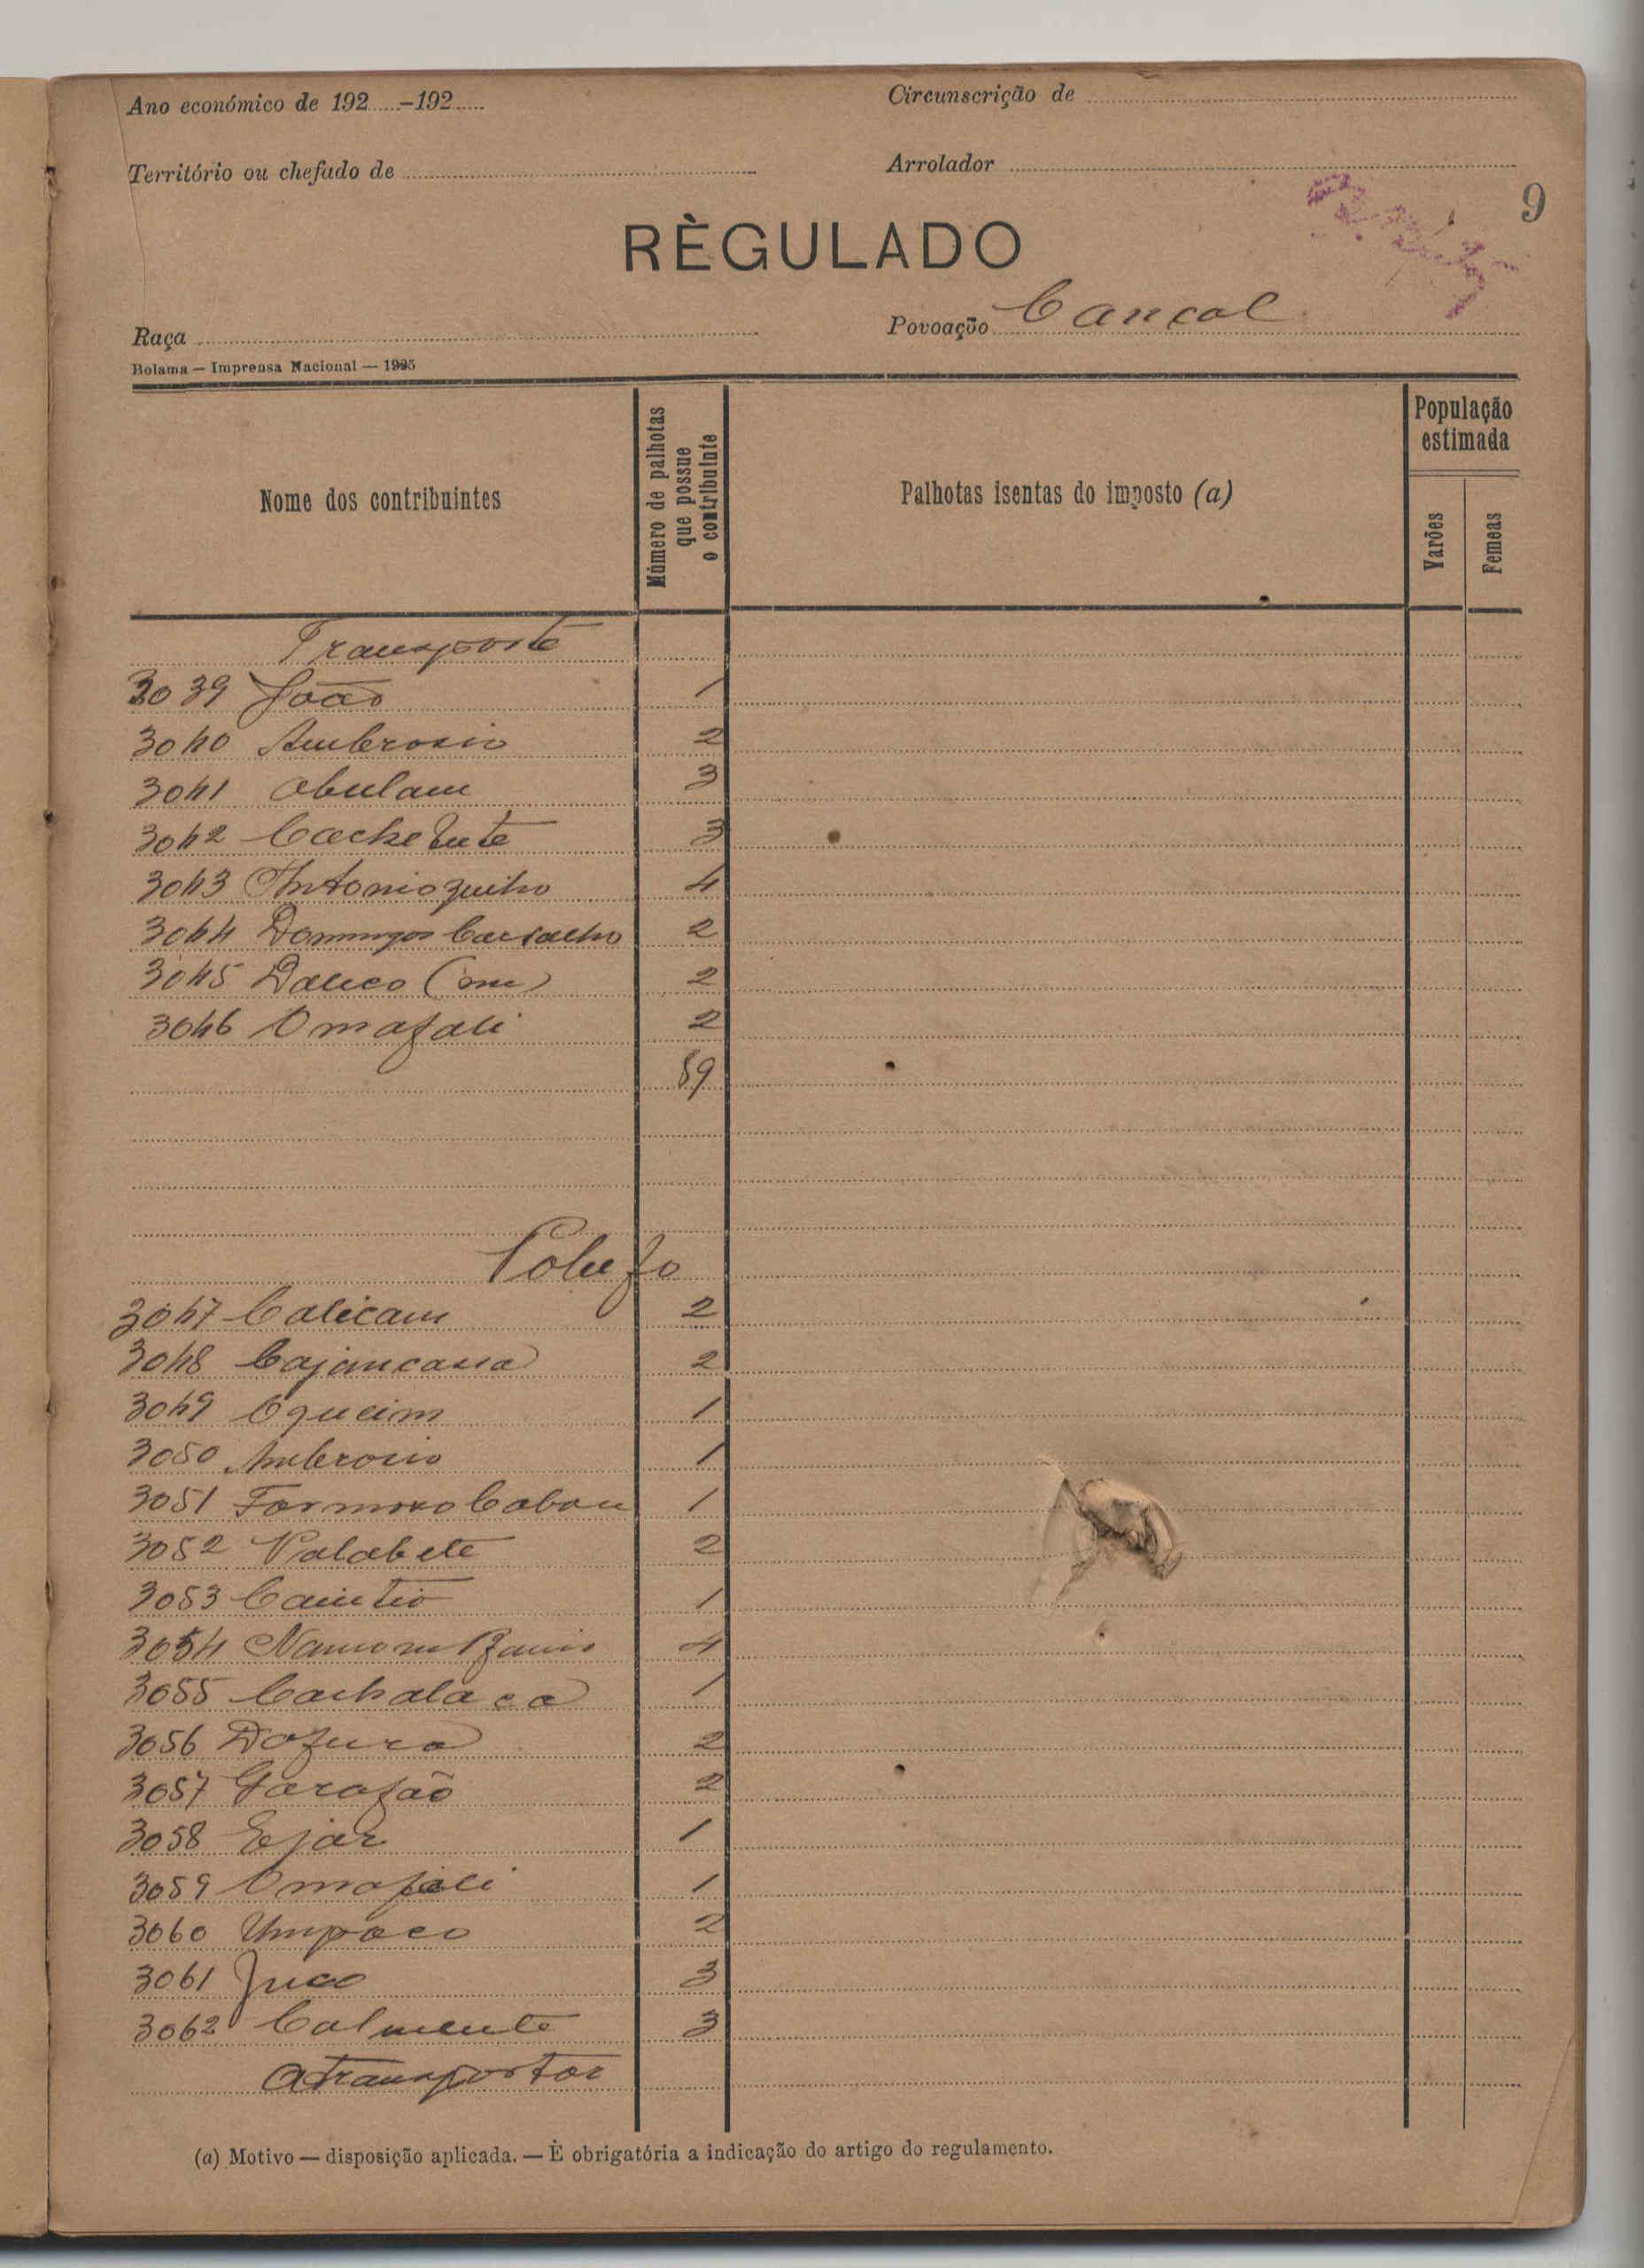 Ano económico de 192.....-192.....
Circunscrição de
Território ou chefado de
Arrolador
9
RÈGULADO
Raça
Povoação Cancol
Bolama — Imprensa Nacional — 1925
Nome dos contribuintes
Número de palhotas que possue o contribuinte
Palhotas isentas do imposto (a)
População estimada
Varões
Femeas
Transporte
3039 João 1
3040 Ambrosio 2
3041 Obulam 3
3042 3
3043 Antoniozinho 4
3044 Domingos Carvalho 2
3045 2
3046 Omafali 2
59
3047 Calicam 2
3048 2
3049 1
3050 Ambrosio 1
3051 Formoso Cabou 1
3052 2
3053 1
3054 4
3055 1
3056 Dofura 2
3057 Garafão 2
3058 Ejar 1
3059 Omafali 1
3060 Umpaco 2
3061 Juco 3
3062 Calmente 3
A transportar
(a) Motivo — disposição aplicada. — È obrigatória a indicação do artigo do regulamento.